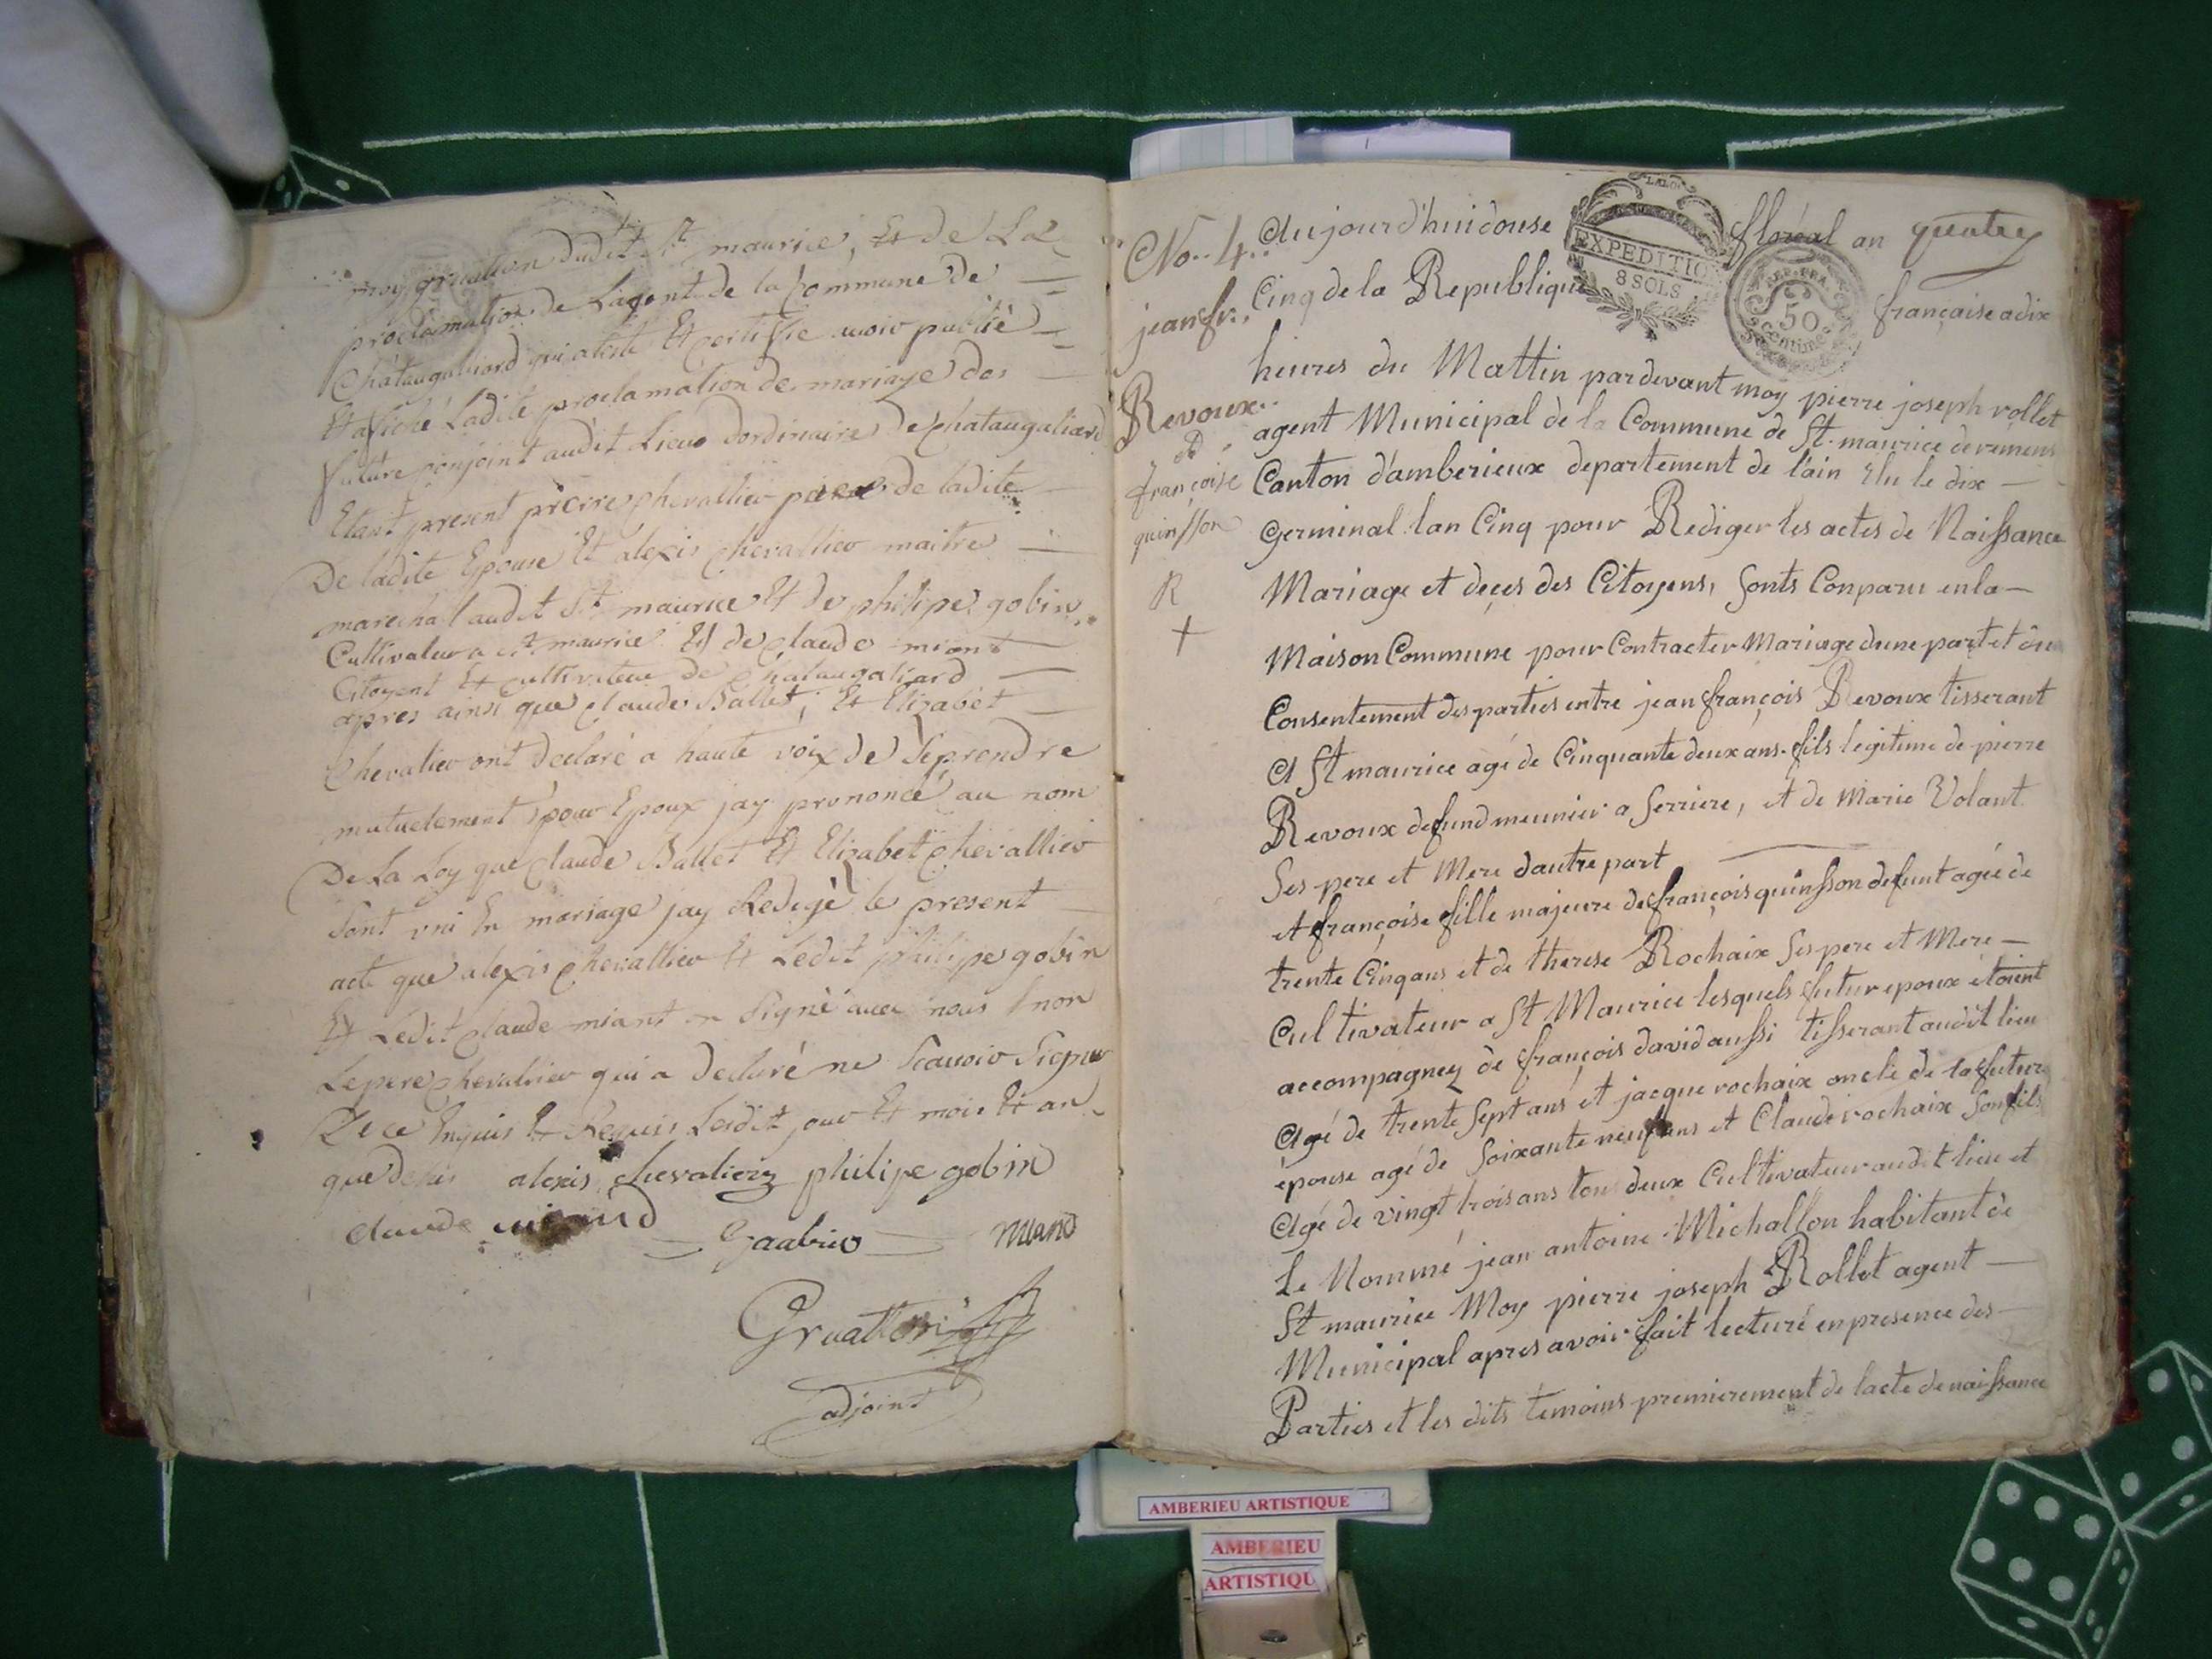 moy gruatton dudit St maurice, Et de La
proclamation de Lagent de la Commune de
Chataugaliard qui ateste Et certifie avoir publié
Et afiché Ladite proclamation de mariage des
future conjoint audit Lieus dordinaire de chataugaliard
Etant present prerre chevallier pere de ladite
De ladite Epouse Et alexis chevallier maitre
marechal audit St maurice Et de philipe gobin
Cultivateur a St maurice Et de claude miant
Citoyent Et cultivateur de Chataugaliard
apres ainsi que claude Ballet, Et Elizabet
Chevalier ont declaré a haute voix de Seprendre
mutuelement pour Epoux jay prononcé au nom
De La Loy que claude Ballet Et Elizabet chevallier
Sont uni En mariage jay Redigé le present
acte que alexis chevallier Et Ledit philipe gobin
Et Ledit claude miant on Signé avec nous Et non
Lepere chevallier qui a declaré ne Scavoir Signer
De ce Enquis Et Requis Lesdit jour Et mois Et an
que dessus alexis chevalierz philipe gobin
claude miand
Miand
Gruatton
adjoint
No. 4. aujourd'hui douse floréal an quatre
Cinq de la Republique française a dix
EXPEDITIO
8 SOLS
REP. FRA.
50
centimes
jean fr.
Revoux
&
françoise
quinsson
R
+
heures du Mattin pardevant moy pierre joseph rollet
agent Municipal de la Commune de St. maurice de remens
Canton d'amberieux departement de l'ain Elu le dix
Germinal lan Cinq pour Rediger les actes de Naissance
Mariage et deçes des Citoyens, Sonts Conparu en la
Maison Commune pour Contracter Mariage dune part et du
Consentement des parties entre jean françois Revoux tisserant
A St maurice agé de Cinquante deux ans. fils legitime de pierre
Revoux defund meunier a Serriere, et de Marie Volant
Ses pere et Mere dautre part
et françoise fille majeure de françois quinsson defunt agée de
trente Cinq ans et de therese Rochaix Ses pere et Mere
Cultivateur a St Maurice lesquels futur epoux étoient
accompagnez de françois david aussi tisserant audit lieu
Agé de trente Sept ans et jacque rochaix oncle de la future
épouse agé de Soixante neuf ans et Claude rochaix Son fils
Agé de vingt trois ans tous deux Cultivateur audit lieu et
Le Nommé jean antoine Michallon habitant de
St maurice Moy pierre joseph Rollet agent
Municipal apres avoir fait lecture en presence des
Parties et les dits temoins premierement de lacte de naissance
AMBERIEU ARTISTIQUE
AMBERIEU
ARTISTIQU